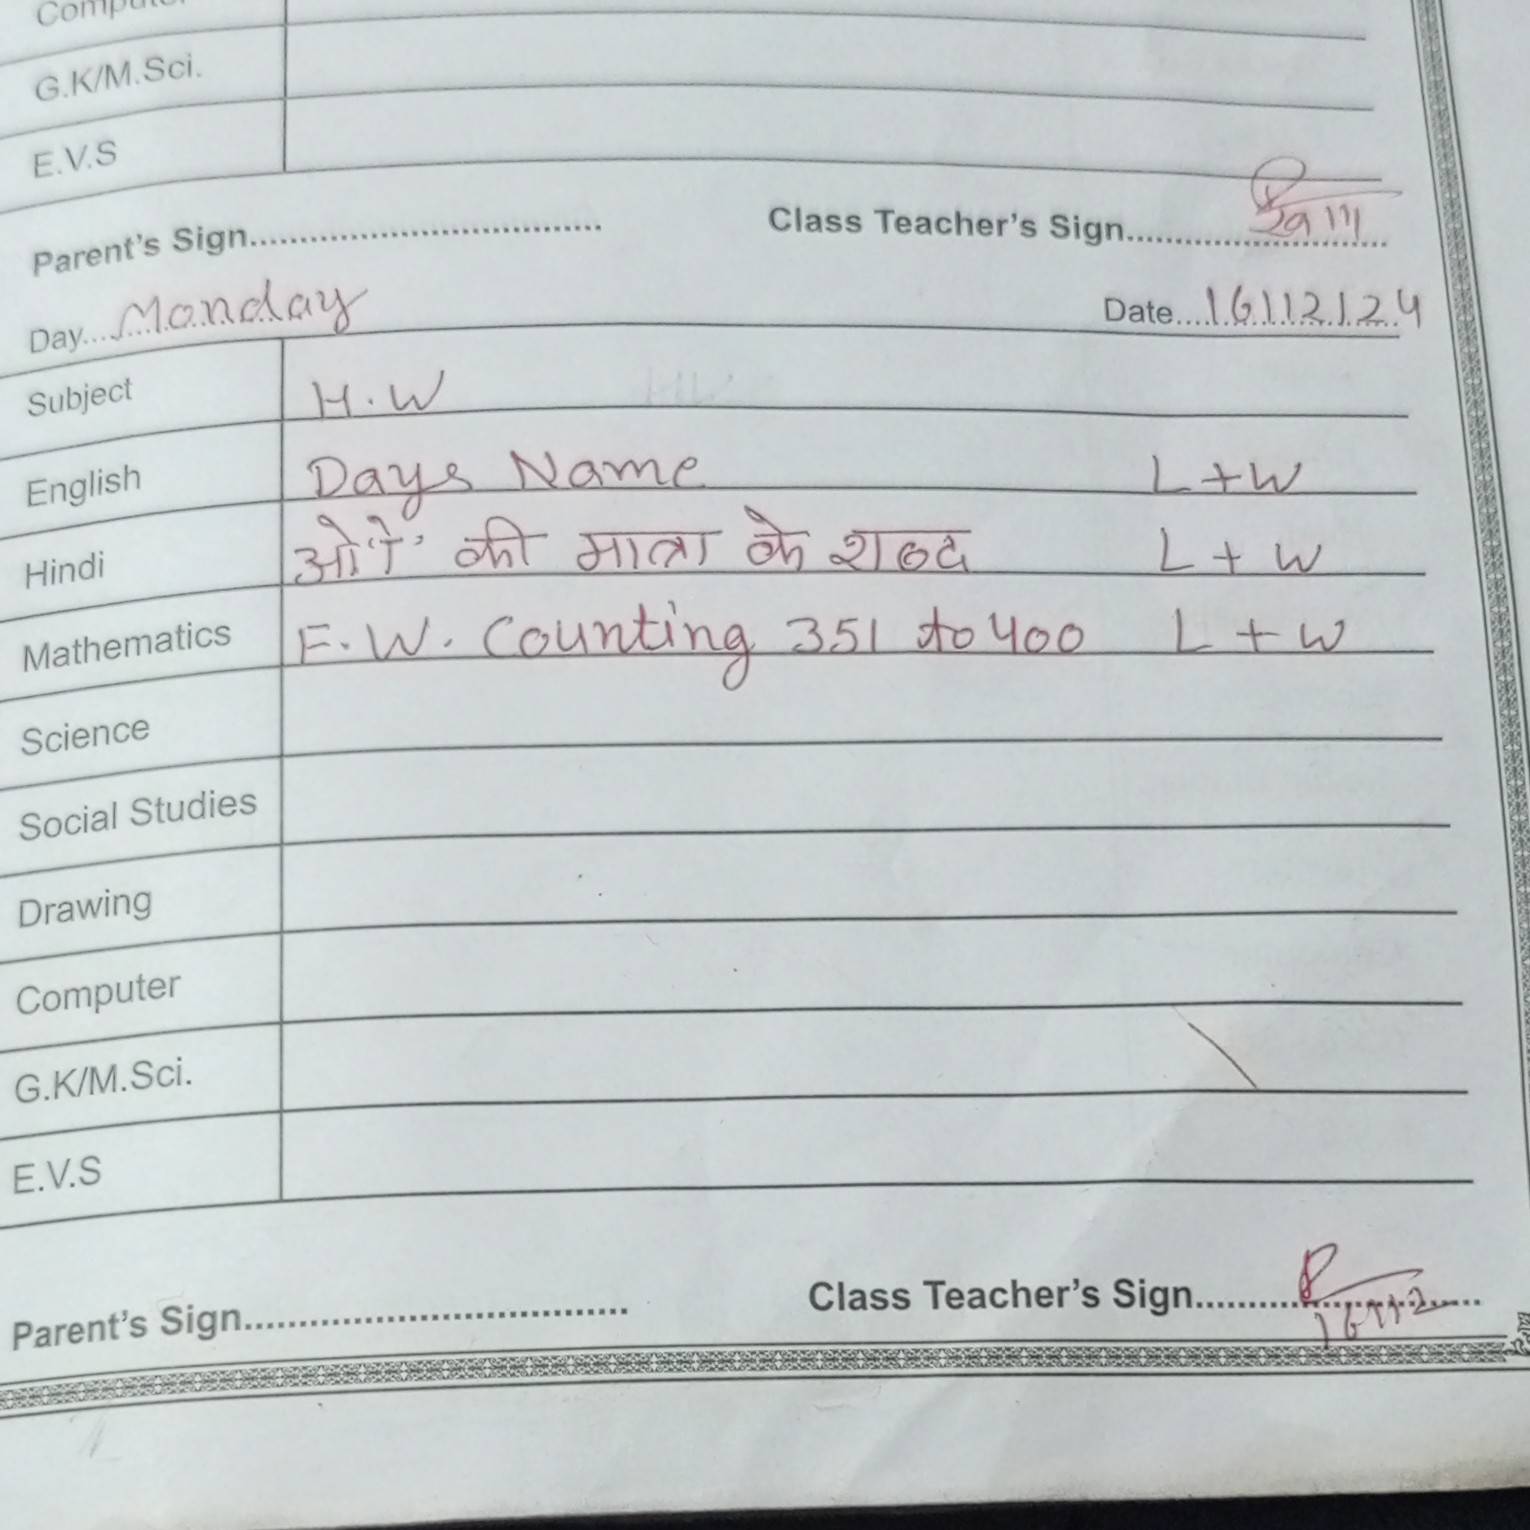 G.K/M.Sci.
E.V.S
Parent's Sign.................................... Class Teacher's Sign..........................
Day...Monday Date....16/12/24
Subject H.W
English Days Name L+W
Hindi ओ 'ो' की मात्रा के शब्द L+W
Mathematics F.W. Counting 351 to 400 L+W
Science
Social Studies
Drawing
Computer
G.K/M.Sci.
E.V.S
Parent's Sign.................................... Class Teacher's Sign..........................
16/12